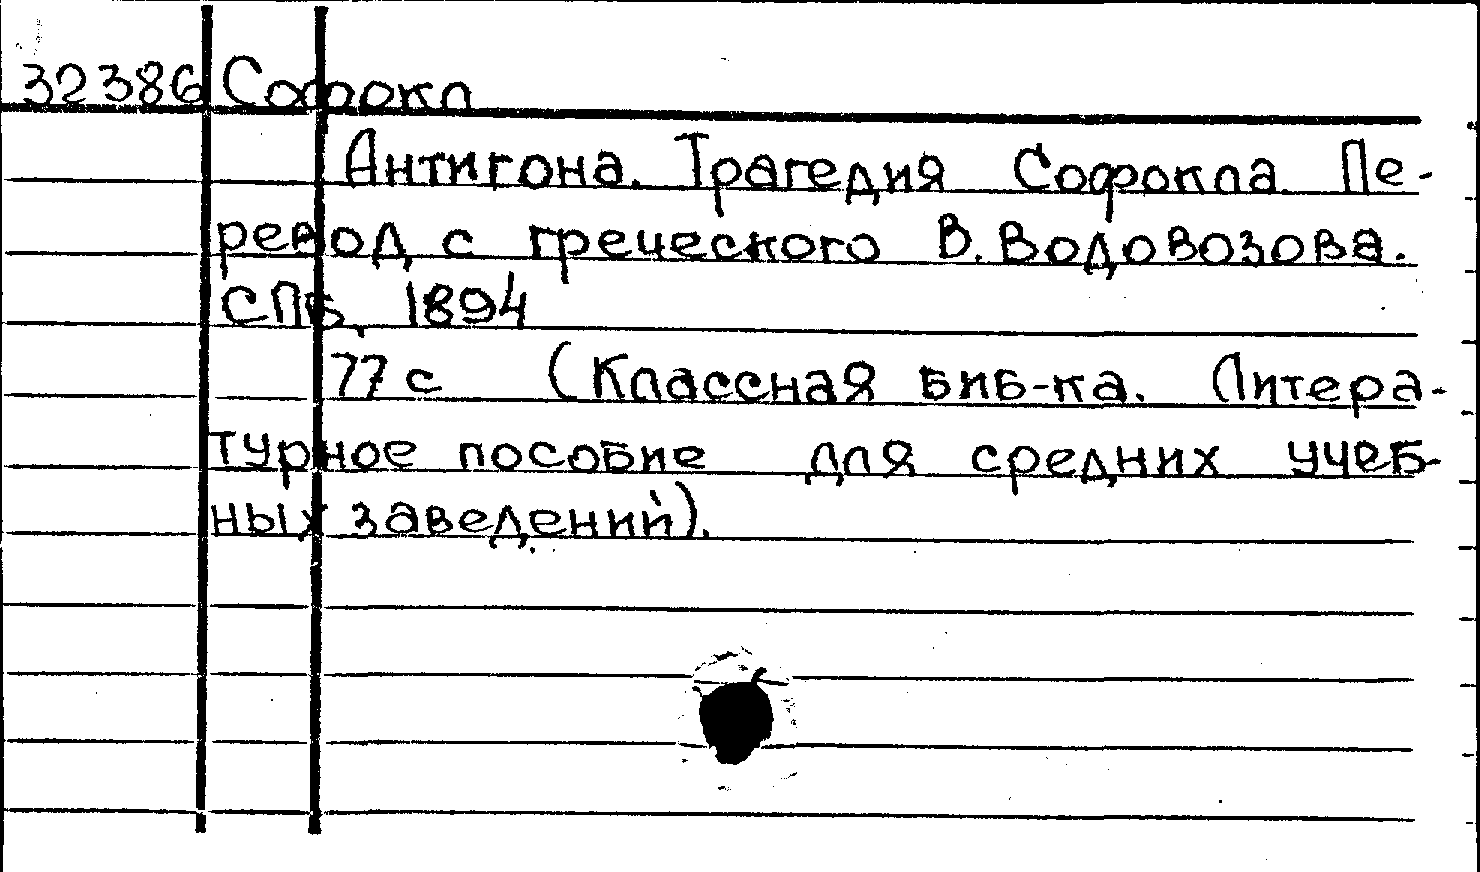 32386 Софокл
Антигона. Трагедия Софокла. Пе-
ревод с греческого В. Водовозова.
СПб, 1894
77 с (Классная биб-ка. Литера-
турное пособие для средних учеб-
ных заведений).